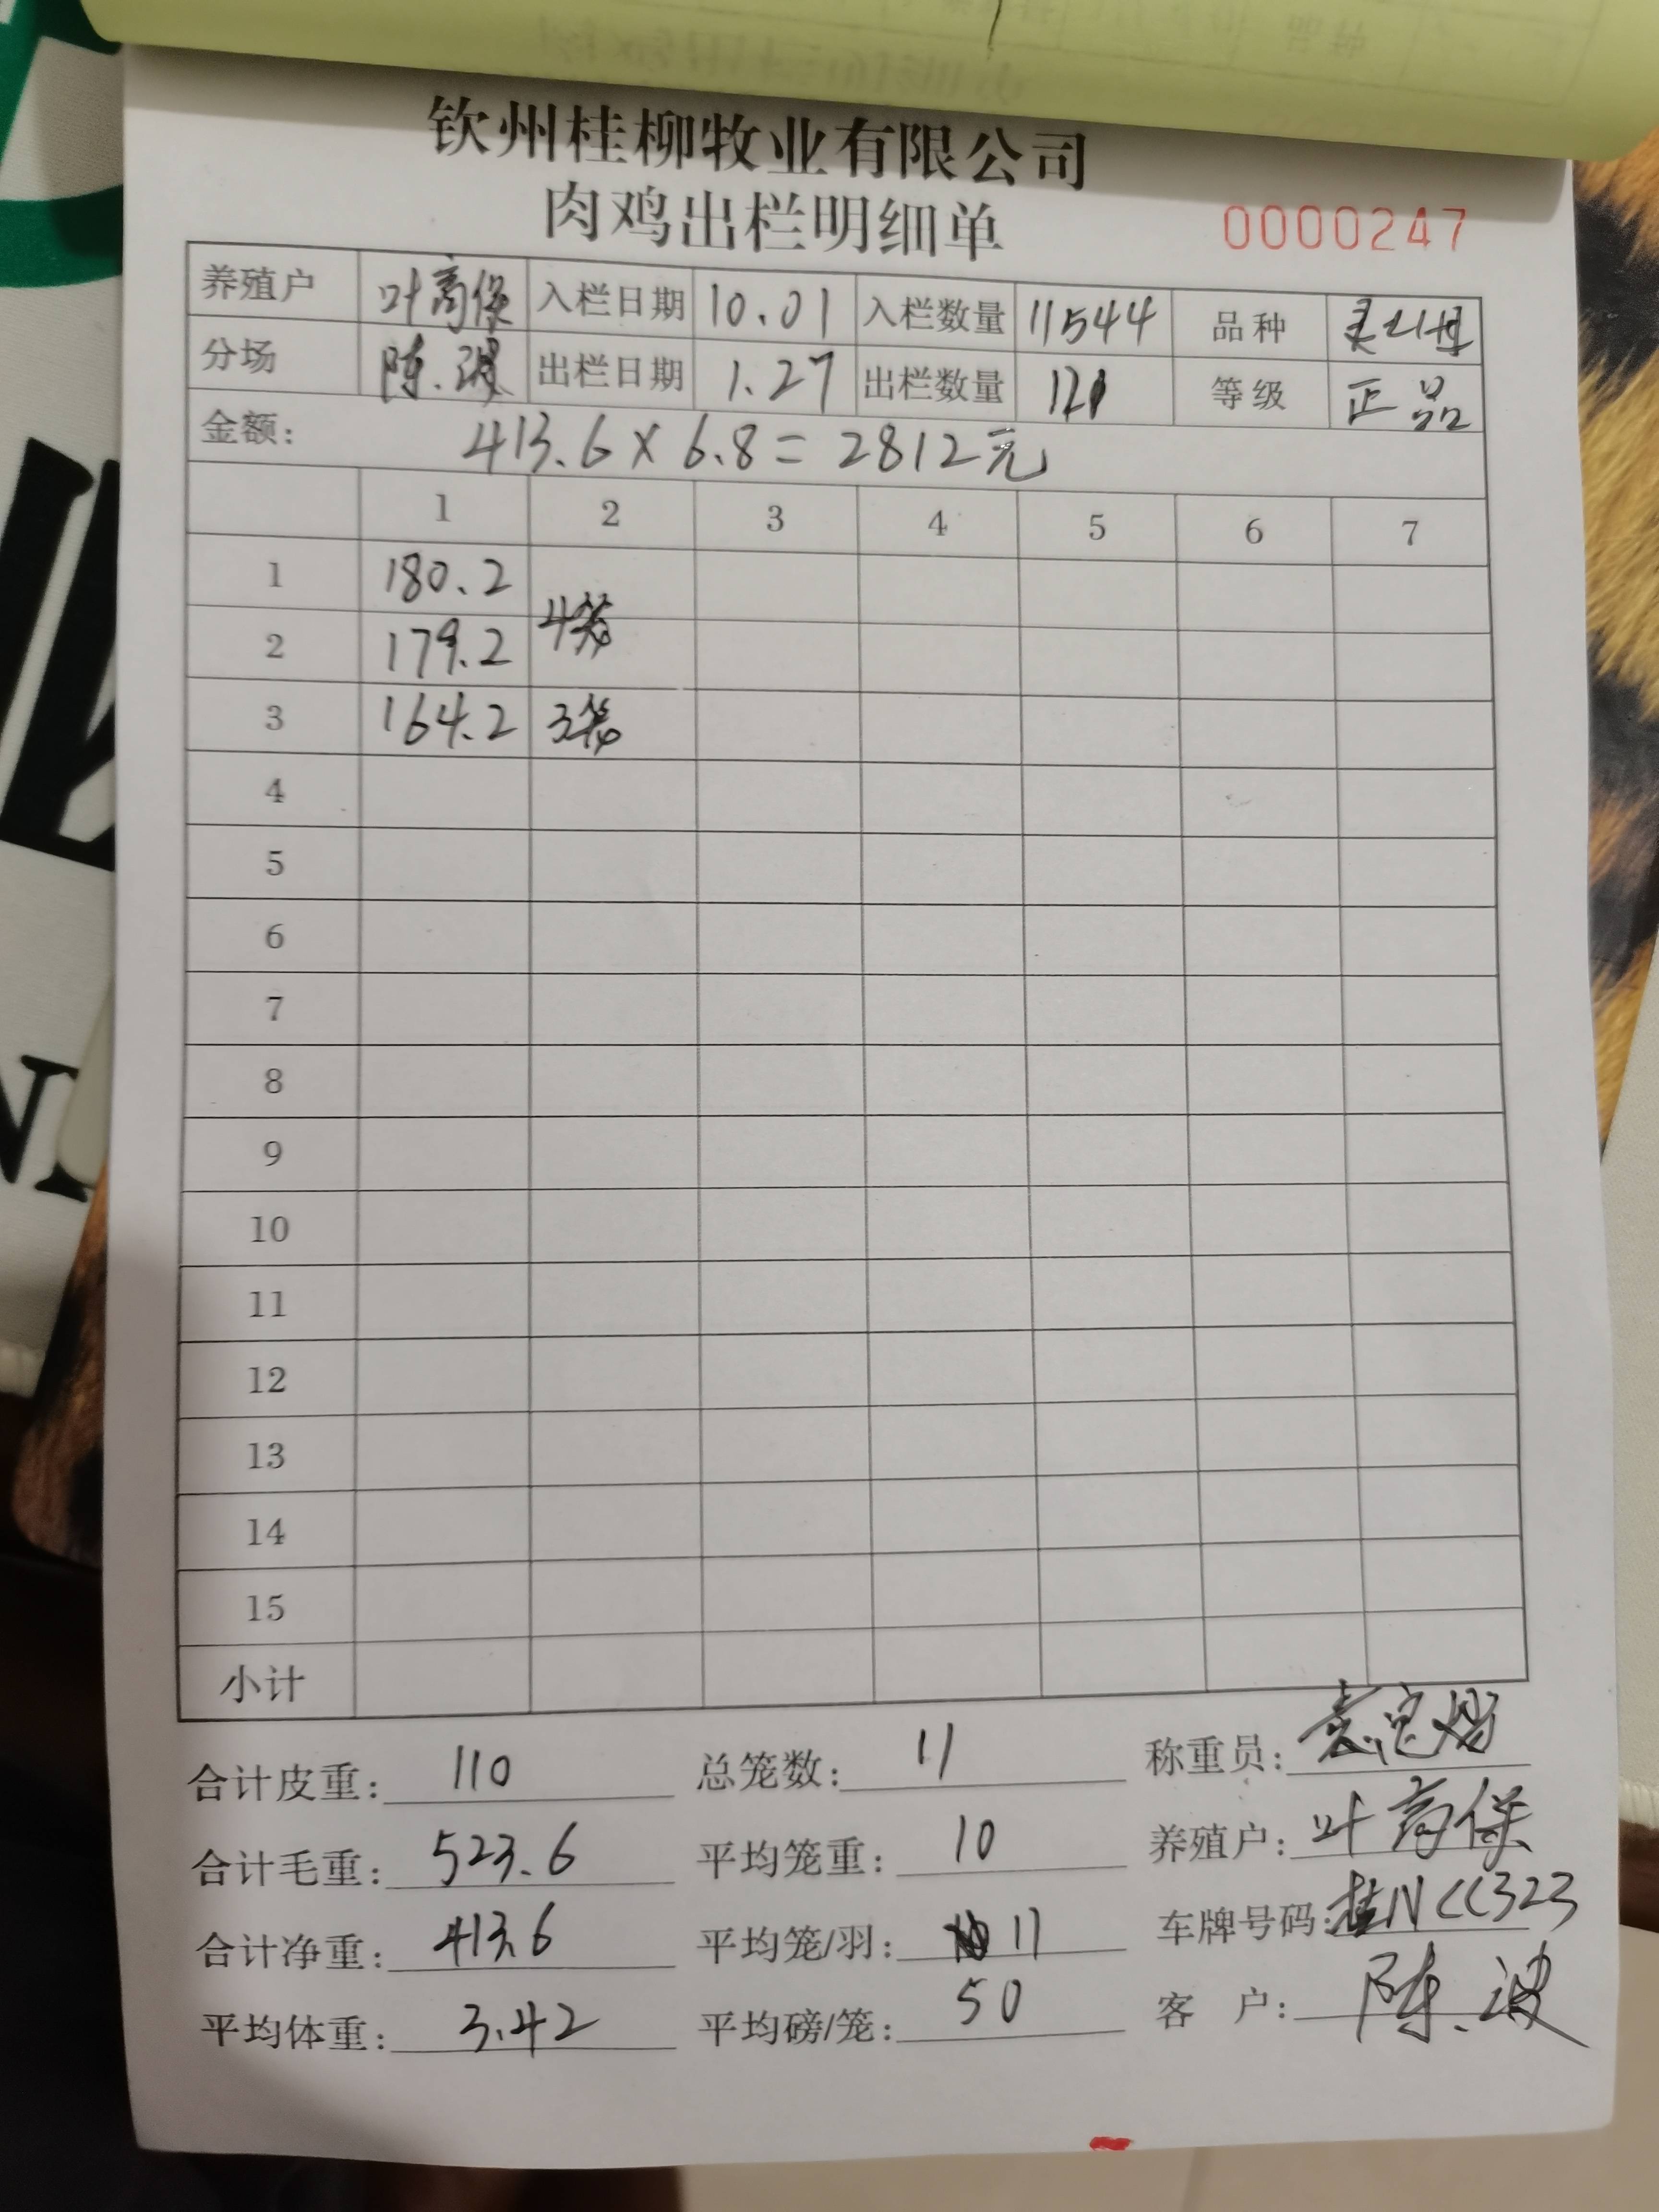 钦州桂柳牧业有限公司
肉鸡出栏明细单 0000247
养殖户 叶高保 入栏日期 10.01 入栏数量 11544 品种
分场 陈波 出栏日期 1.27 出栏数量 121 等级 正品
金额: 413.6×6.8=2812元
1 2 3 4 5 6 7
1 180.2
4笼
2 179.2
3 164.2 3笼
4
5
6
7
8
9
10
11
12
13
14
15
小计
合计皮重: 110 总笼数: 11 称重员:
合计毛重: 523.6 平均笼重: 10 养殖户: 叶高保
合计净重: 413.6 平均笼/羽: 11 车牌号码: 桂NCC323
平均体重: 3.42 平均磅/笼: 50 客户: 陈波